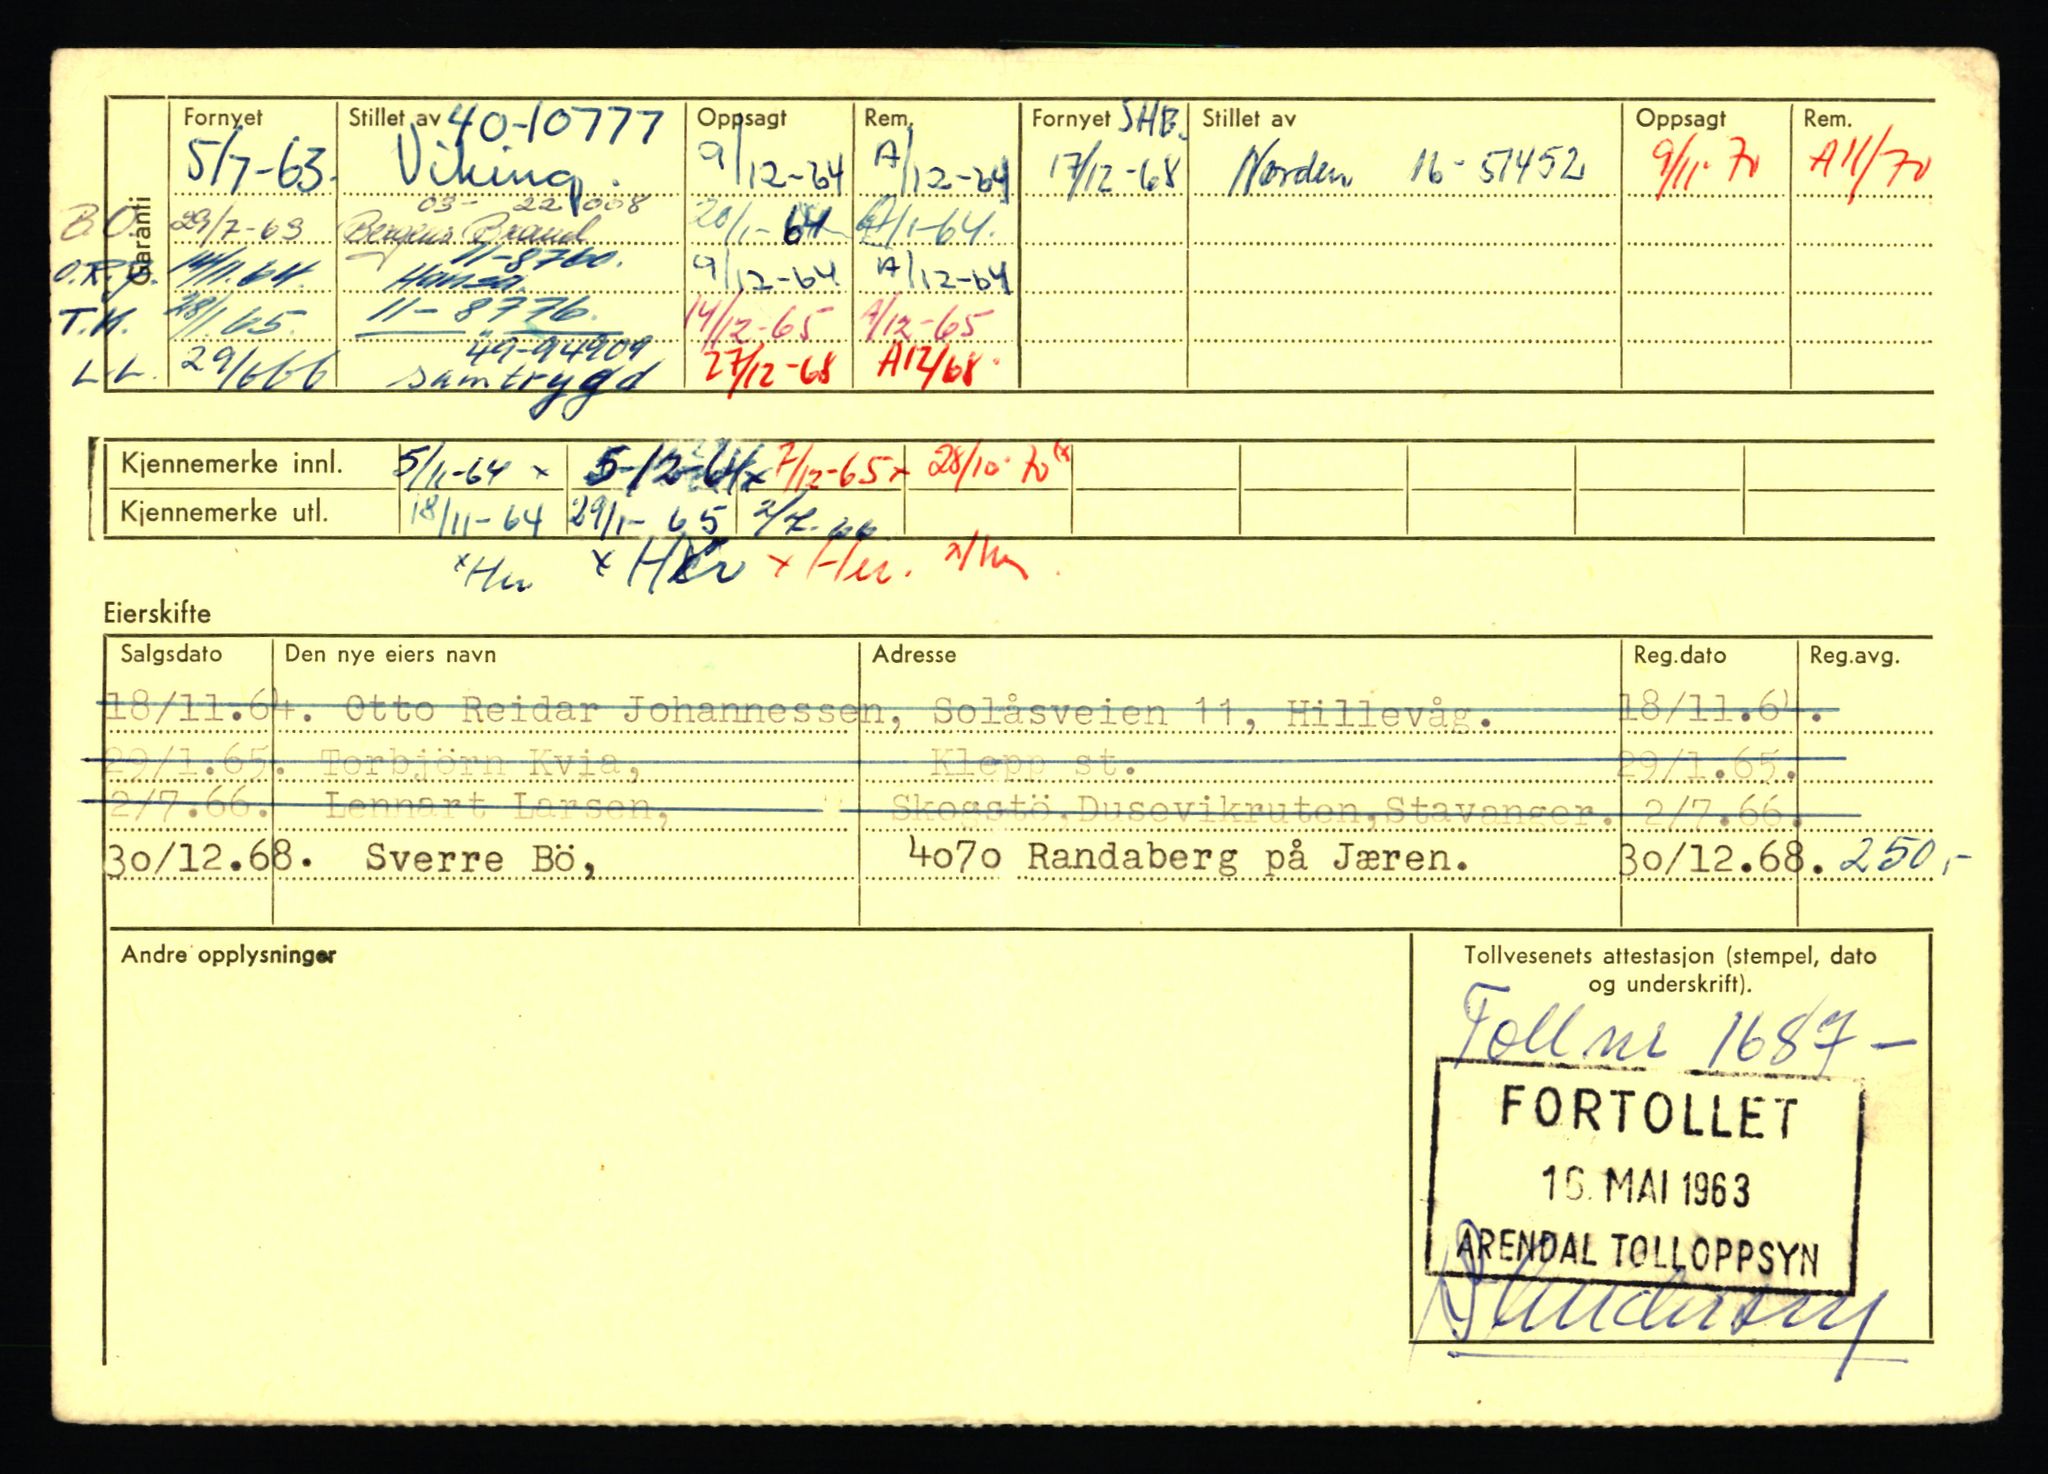 Fornyet Stillet av 40-10777 Oppsagt Rem. Fornyet SHB. Stillet av Oppsagt Rem.
5/7-63. Viking. 9/12-64 A/12-64 17/12-68 Norden 16-51452 9/11-70 A11/70
Garanti
B.O. 29/7-63 03- 221008 Bergens Brand 20/1-64 A/1-64.
O.R.J. 14/11.64. 11-8760. Hansa. 9/12-64 A/12-64
T.K. 28/1.65. 11-8776. 14/12-65 A/12-65
L.L. 29/6 66 49-94909 samtrygd 27/12-68 A12/68.
Kjennemerke innl. 5/11-64 x 5-12-64 x 7/12-65 x 28/10-70 x
Kjennemerke utl. 18/11-64 29/1-65 2/7-66
Eierskifte
Salgsdato Den nye eiers navn Adresse Reg.dato Reg.avg.
18/11.64. Otto Reidar Johannessen, Solåsveien 11, Hillevåg. 18/11.64.
29/1.65. Torbjörn Kvia, Klepp st. 29/1.65.
2/7.66. Lennart Larsen, Skogstö,Dusevikruten,Stavanger. 2/7.66.
30/12.68. Sverre Bö, 4070 Randaberg på Jæren. 30/12.68. 250,-
Andre opplysninger
Tollvesenets attestasjon (stempel, dato
og underskrift).
Toll nr 1687 -
FORTOLLET
16. MAI 1963
ARENDAL TOLLOPPSYN